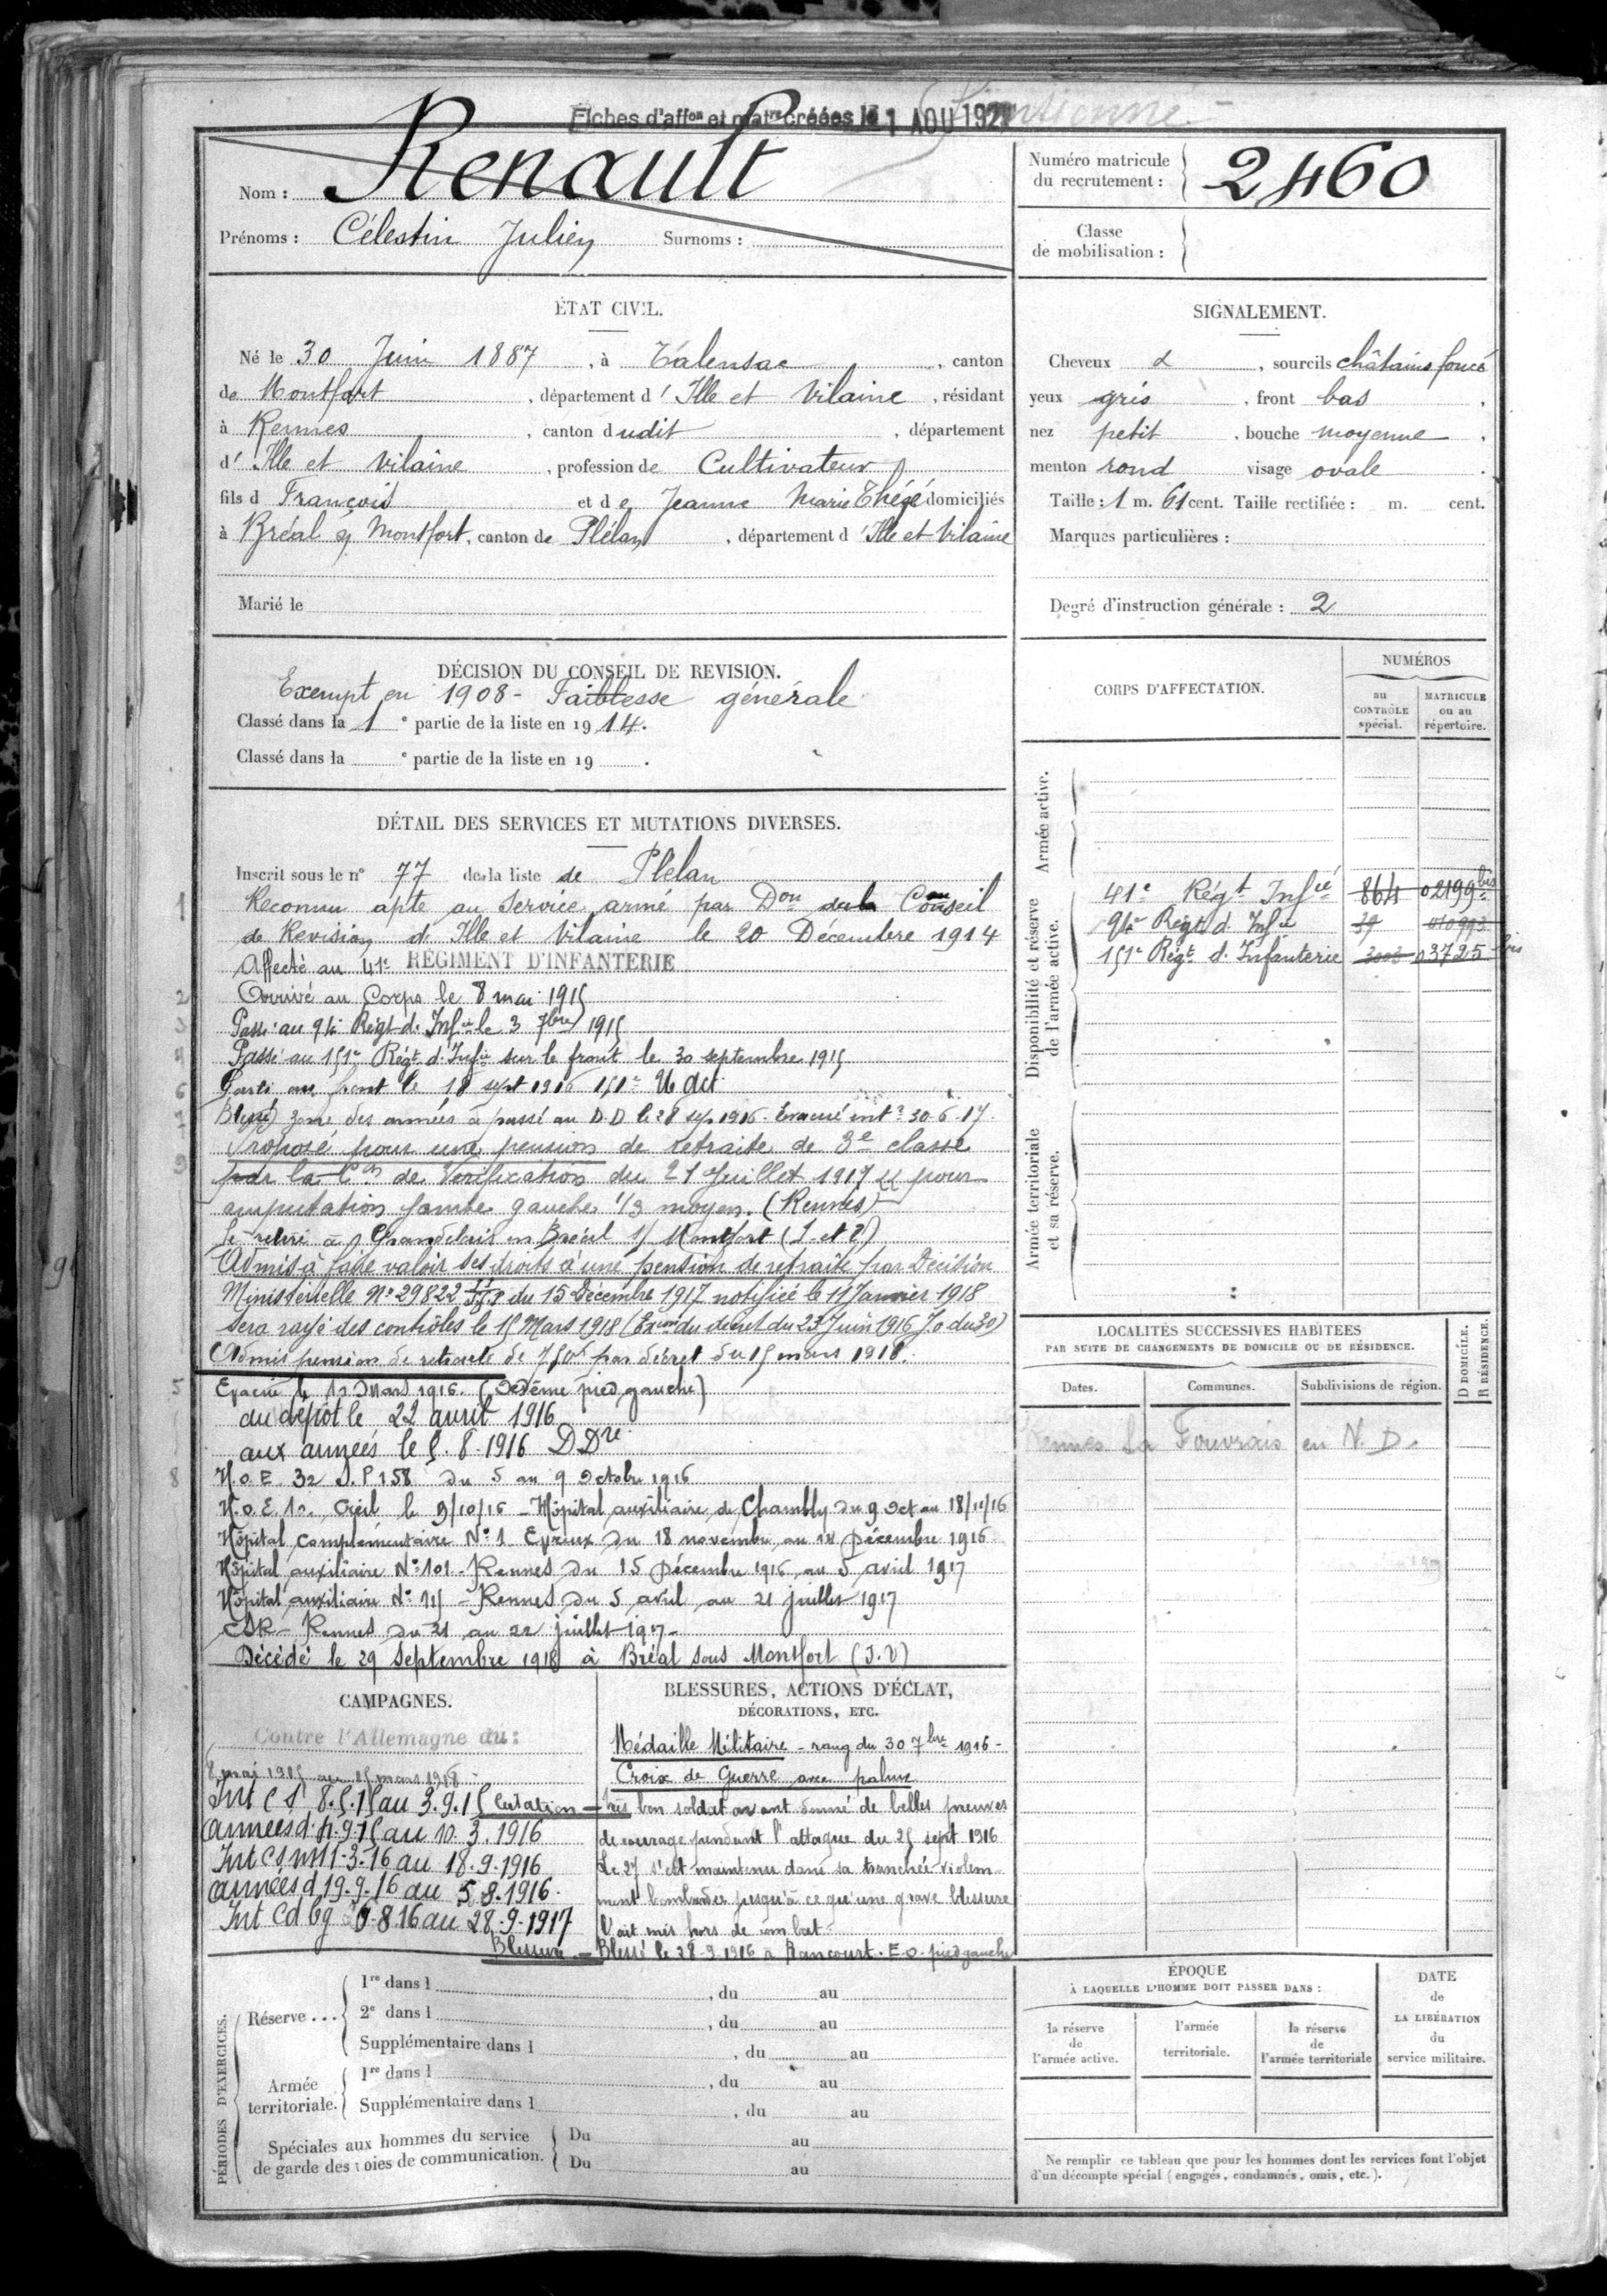 Fiches d'affon et matre créées le 1 AOU 1921
Nom : Renault
Prénoms : Célestin Julien Surnoms :
Numéro matricule
du recrutement : 2460
Classe
de mobilisation :
ÉTAT CIVIL.
Né le 30 Juin 1887, à Talensac, canton
de Montfort, département d' Ille et Vilaine, résidant
à Rennes, canton dudit, département
d' Ille et Vilaine, profession de Cultivateur
fils d François et de Jeanne Marie Thézé domiciliés
à Bréal s/ Montfort, canton de Plélan, département d' Ille et Vilaine
Marié le
SIGNALEMENT.
Cheveux &, sourcils châtains foncé
yeux gris, front bas,
nez petit, bouche moyenne,
menton rond visage ovale.
Taille : 1 m. 61 cent. Taille rectifiée : m. cent.
Marques particulières :
Degré d'instruction générale : 2
DÉCISION DU CONSEIL DE REVISION.
Exempt en 1908 - Faiblesse générale
Classé dans la 1e partie de la liste en 1914.
Classé dans la e partie de la liste en 19 .
DÉTAIL DES SERVICES ET MUTATIONS DIVERSES.
Inscrit sous le n° 77 de la liste de Plélan
1 Reconnu apte au Service armé par Don du Conseil
de Revision d' Ille et Vilaine le 20 Décembre 1914
Affecté au 41e RÉGIMENT D'INFANTERIE
2 Arrivé au Corps le 8 mai 1915
3 Passé au 94e Régt d' Infie le 3 7bre 1915
4 Passé au 151e Régt d'Infie sur le front le 30 septembre 1915
6 Parti au front le 18 sept 1916 151e
7 Blessé zone des armées a passé au D.D le 28 sep 1916. Evacué intr 30-6-17.
Proposé pour une pension de retraite de 3e classe
9 par la Con de Vérification du 21 Juillet 1917 pour
amputation jambe gauche 1/3 moyen. (Rennes)
Se retire à en Bréal s/ Montfort (I. et V)
Admis à faire valoir ses droits à une pension de retraite par Décision
Ministérielle N° 29822 du 15 Décembre 1917 notifiée le 11 Janvier 1918
Sera rayé des contrôles le 15 Mars 1918 (Exon du décret du 23 Juin 1916 J.O du 30)
Admis pension de retraite de 750f par décret du 15 mars 1918.
5 Evacué le 12 Mars 1916. (Oedème pied gauche)
au dépôt le 22 avril 1916
aux armées le 5.8.1916 DDre
8 H.O.E. 32 S.P 158 du 5 au 9 Octobre 1916
H.O.E. 12. Creil le 9/10/16 - Hôpital auxiliaire de Chambly du 9 Oct au 18/11/16
Hôpital Complémentaire N° 1 Evreux du 18 novembre au 14 Décembre 1916
Hôpital auxiliaire N° 101 - Rennes du 15 Décembre 1916 au 5 avril 1917
Hôpital auxiliaire N° 115 - Rennes du 5 avril au 21 juillet 1917
CSR - Rennes du 21 au 22 juillet 1917 -
Décédé le 29 Septembre 1918 à Bréal sous Montfort (I.V)
CORPS D'AFFECTATION.
NUMÉROS
au CONTRÔLE spécial.
MATRICULE ou au répertoire.
Armée active.
Disponibilité et réserve de l'armée active.
41e Régt Infie 864 02199 bis
94e Régt d' Infie 39 010993
151e Régt d' Infanterie 3008 03725 bis
Armée territoriale et sa réserve.
LOCALITÉS SUCCESSIVES HABITÉES
PAR SUITE DE CHANGEMENTS DE DOMICILE OU DE RÉSIDENCE.
Dates. Communes. Subdivisions de région. D DOMICILE. R RÉSIDENCE.
Rennes La Touvrais en N. D.
CAMPAGNES.
Contre l'Allemagne du :
8 mai 1915 au 15 mars 1918
Int CS 8.5.15 au 3.9.15
armées d. 4.9.15 au 10.3.1916
Int CS m 11-3-16 au 18.9.1916
armées d 19.9.16 au 5.8.1916.
Int Cd bg 6-8 16 au 28-9-1917
BLESSURES, ACTIONS D'ÉCLAT,
DÉCORATIONS, ETC.
Médaille Militaire - rang du 30 7bre 1916 -
Croix de Guerre avec palme
Citation - très bon soldat ayant donné de belles preuves
de courage pendant l'attaque du 25 sept 1916
Le 27 s'est maintenu dans sa tranchée violem-
ment bombardée jusqu'à ce qu'une grave blessure
l'ait mis hors de combat -
Blessure - Blessé le 28-9-1916 à Rancourt. E.O. pied gauche
PÉRIODES D'EXERCICES.
Réserve... 1re dans l , du au
2e dans l , du au
Supplémentaire dans l , du au
Armée territoriale. 1re dans l , du au
Supplémentaire dans l , du au
Spéciales aux hommes du service
de garde des voies de communication. Du au
Du au
ÉPOQUE
À LAQUELLE L'HOMME DOIT PASSER DANS :
la réserve de l'armée active.
l'armée territoriale.
la réserve de l'armée territoriale
DATE de LA LIBÉRATION du service militaire.
Ne remplir ce tableau que pour les hommes dont les services font l'objet
d'un décompte spécial (engagés, condamnés, omis, etc.).